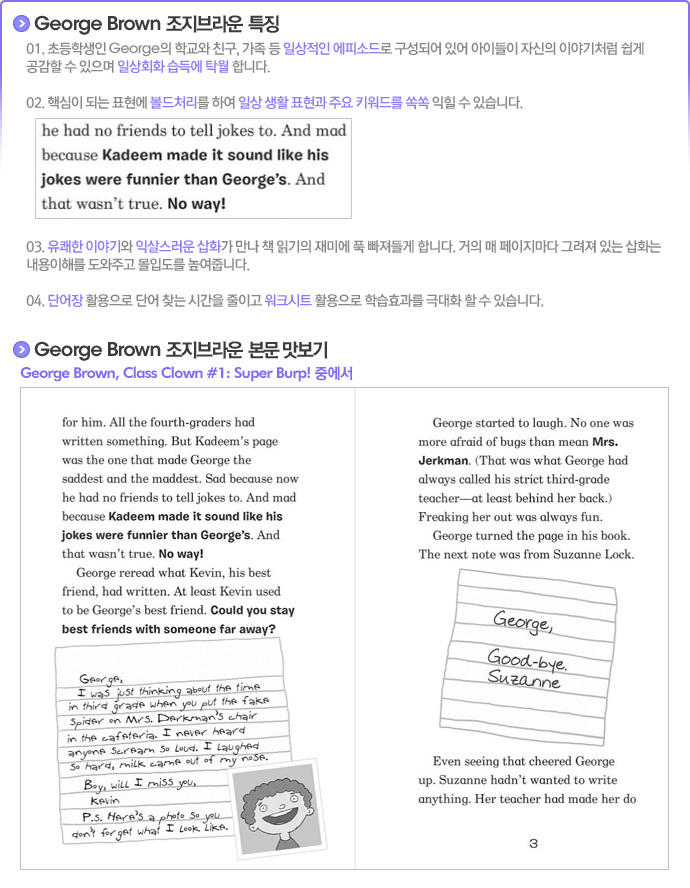 George Brown 조지브라운 특징
01. 초등학생인 George의 학교와 친구, 가족 등 일상적인 에피소드로 구성되어 있어 아이들이 자신의 이야기처럼 쉽게
공감할 수 있으며 일상회화 습득에 탁월 합니다.
02. 핵심이 되는 표현에 볼드처리를 하여 일상 생활 표현과 주요 키워드를 쏙쏙 익힐 수 있습니다.
he had no friends to tell jokes to. And mad
because Kadeem made it sound like his
jokes were funnier than George's. And
that wasn't true. No way!
03. 유쾌한 이야기와 익살스러운 삽화가 만나 책 읽기의 재미에 푹 빠져들게 합니다. 거의 매 페이지마다 그려져 있는 삽화는
내용이해를 도와주고 몰입도를 높여줍니다.
04. 단어장 활용으로 단어 찾는 시간을 줄이고 워크시트 활용으로 학습효과를 극대화 할 수 있습니다.
George Brown 조지브라운 본문 맛보기
George Brown, Class Clown #1: Super Burp! 중에서
for him. All the fourth-graders had
written something. But Kadeem's page
was the one that made George the
saddest and the maddest. Sad because now
he had no friends to tell jokes to. And mad
because Kadeem made it sound like his
jokes were funnier than George's. And
that wasn't true. No way!
George reread what Kevin, his best
friend, had written. At least Kevin used
to be George's best friend. Could you stay
best friends with someone far away?
George,
I was just thinking about the time
in third grade when you put the fake
spider on Mrs. Derkman's chair
in the cafeteria. I never heard
anyone scream so loud. I laughed
so hard, milk came out of my nose.
Boy, will I miss you,
Kevin
P.S. Here's a photo so you
don't forget what I look like.
George started to laugh. No one was
more afraid of bugs than mean Mrs.
Jerkman. (That was what George had
always called his strict third-grade
teacher—at least behind her back.)
Freaking her out was always fun.
George turned the page in his book.
The next note was from Suzanne Lock.
George,
Good-bye.
Suzanne
Even seeing that cheered George
up. Suzanne hadn't wanted to write
anything. Her teacher had made her do
3